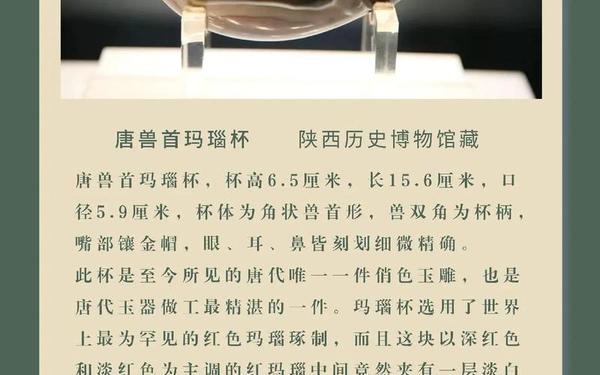 唐兽首玛瑙杯 陕西历史博物馆藏
唐兽首玛瑙杯，杯高6.5厘米，长15.6厘米，口
径5.9厘米，杯体为角状兽首形，兽双角为杯柄，
嘴部镶金帽，眼、耳、鼻皆刻划细微精确。
此杯是至今所见的唐代唯一一件俏色玉雕，也是
唐代玉器做工最精湛的一件。玛瑙杯选用了世界
上最为罕见的红色玛瑙琢制，而且这块以深红色
和淡红色为主调的红玛瑙中间竟然夹有一层淡白